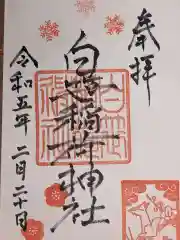 奉拝
白笹稲荷神社
令和五年二月二十日